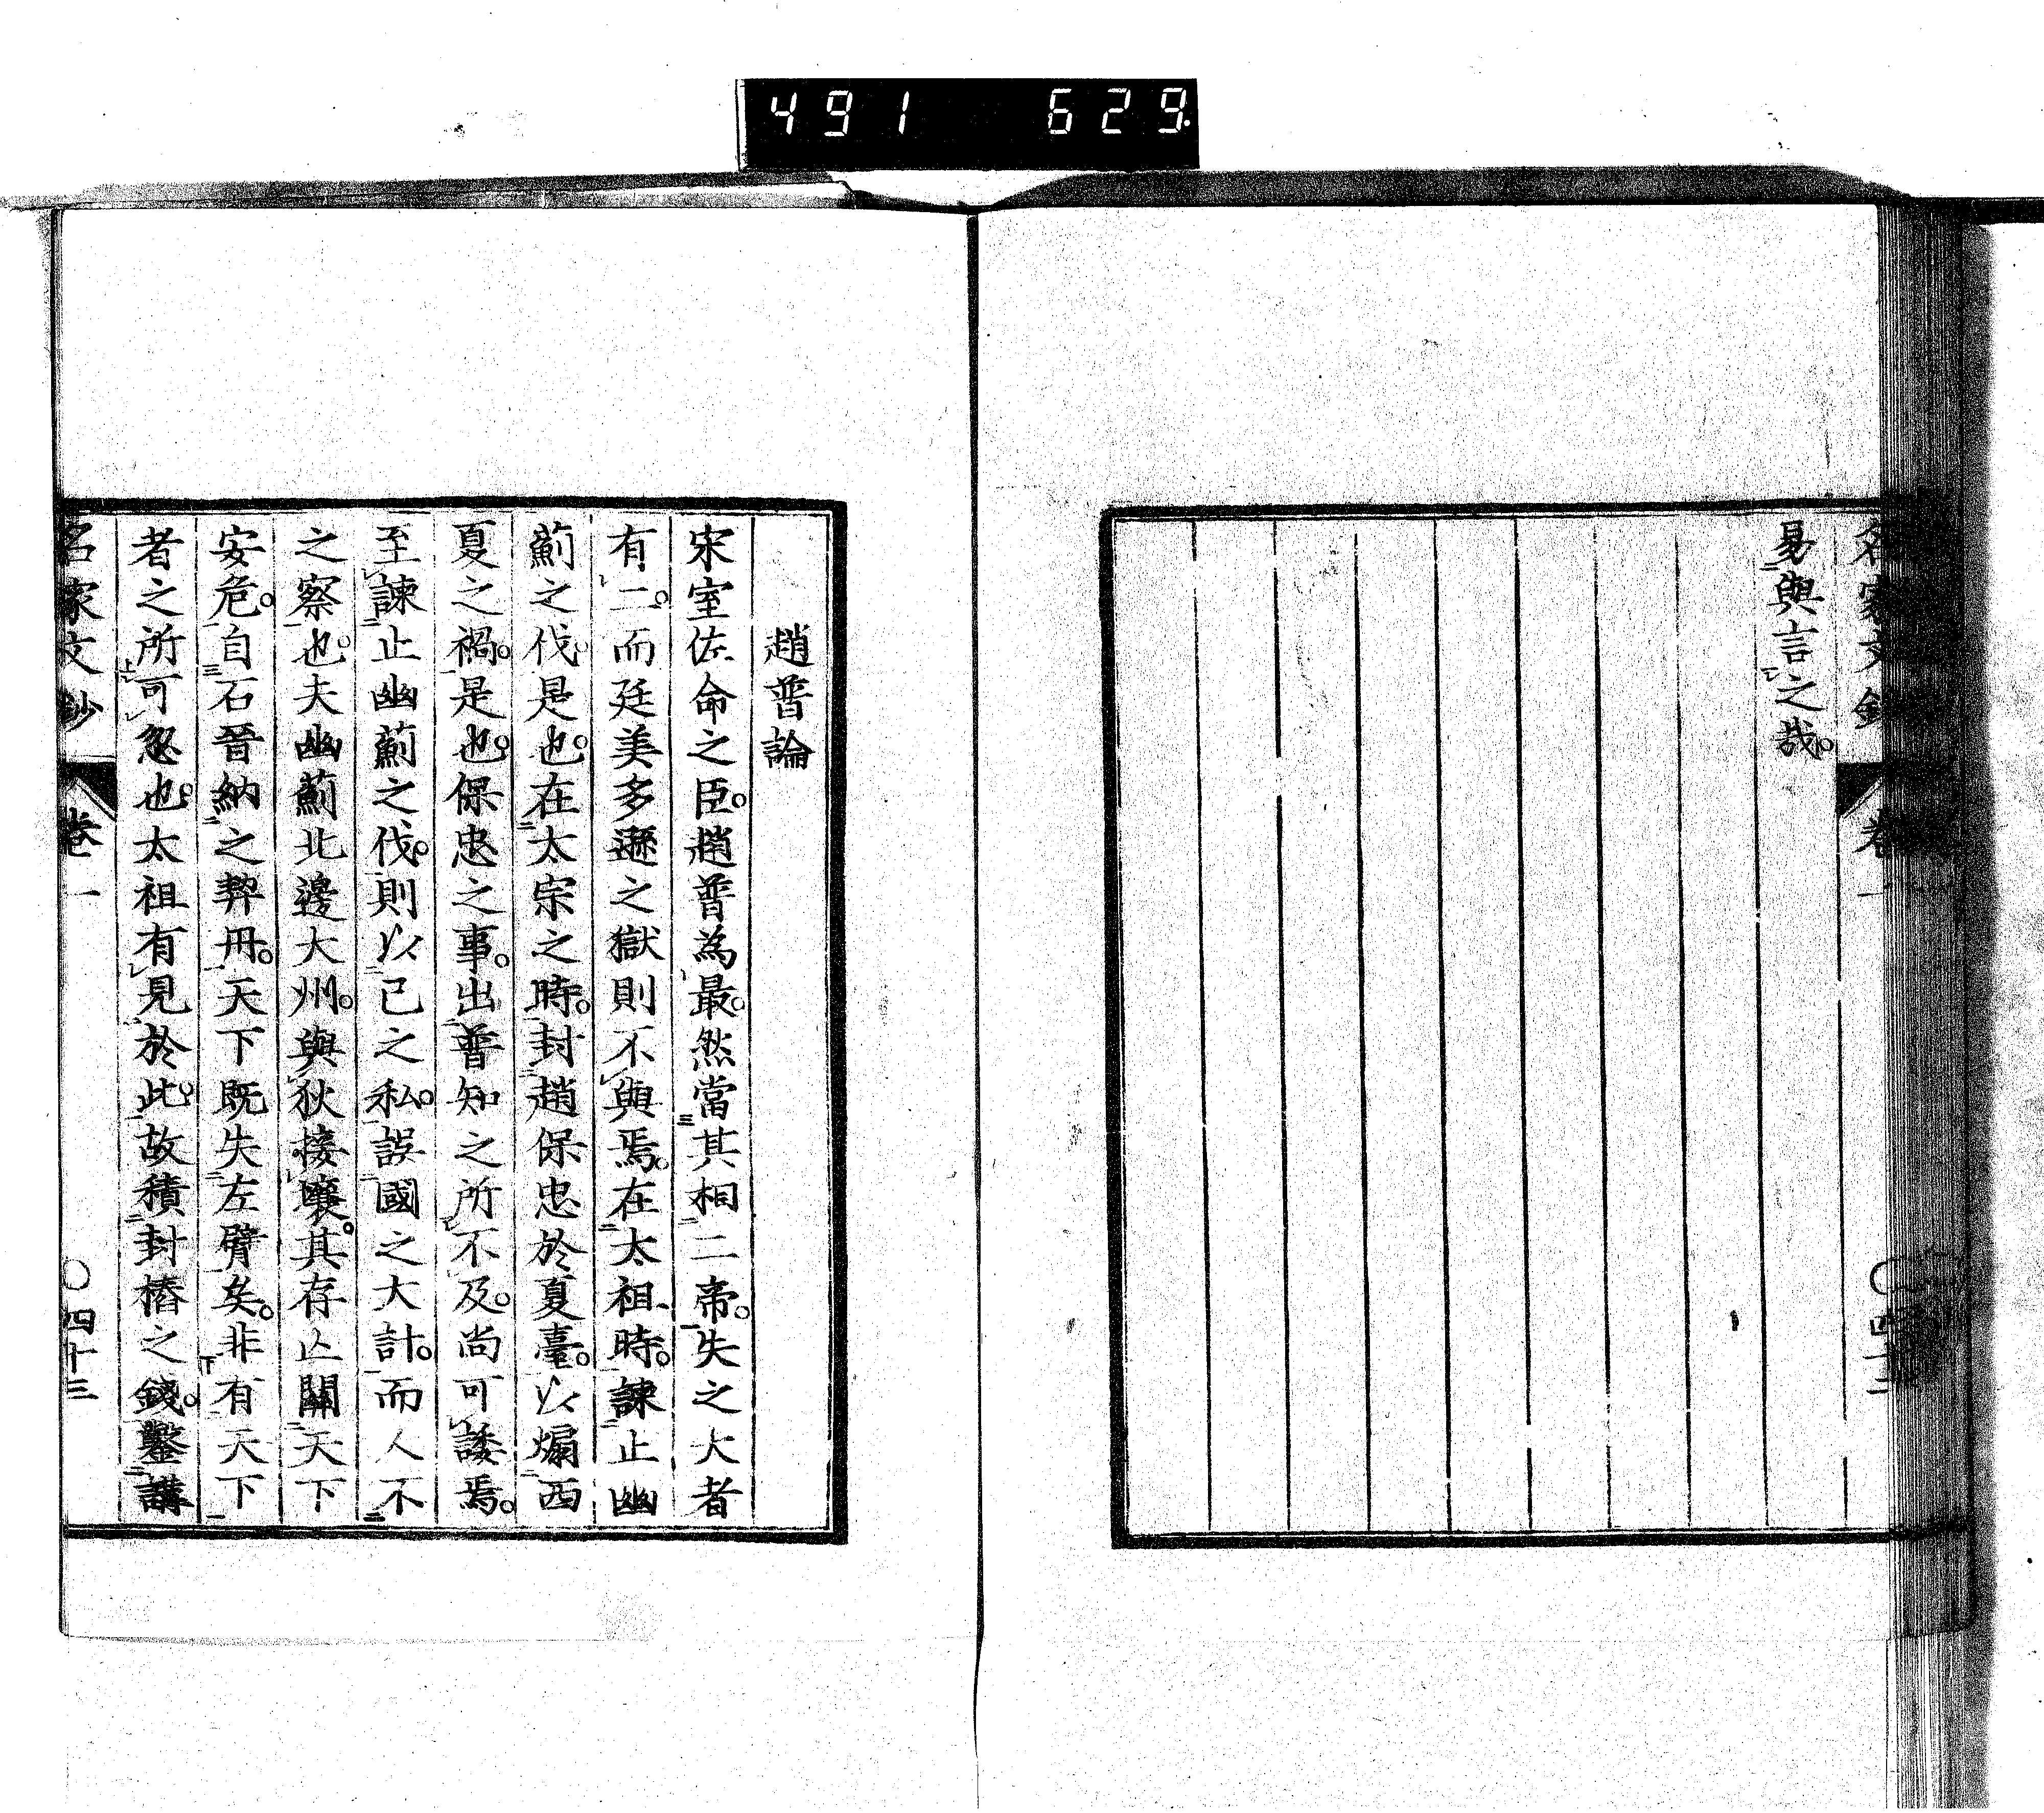 491 629
名家文鈔 卷一
易與言之哉。
趙普論
宋室佐命之臣。趙普為最。然當其相二帝。失之大者
有二。而廷美多遜之獄則不與焉。在太祖時。諫止幽
薊之伐。是也。在太宗之時。封趙保忠於夏臺。以煽西
夏之禍。是也。保忠之事。出普知之所不及。尚可諉焉。
至諫止幽薊之伐。則以己之私。誤國之大計。而人不
之察也。夫幽薊北邊大州。與狄接壤。其存亡關天下
安危。自石晉納之契丹。天下既失左臂矣。非有天下
者之所可忽也。太祖有見於此。故積封樁之錢。鑿講
名家文鈔 卷一 〇四十三